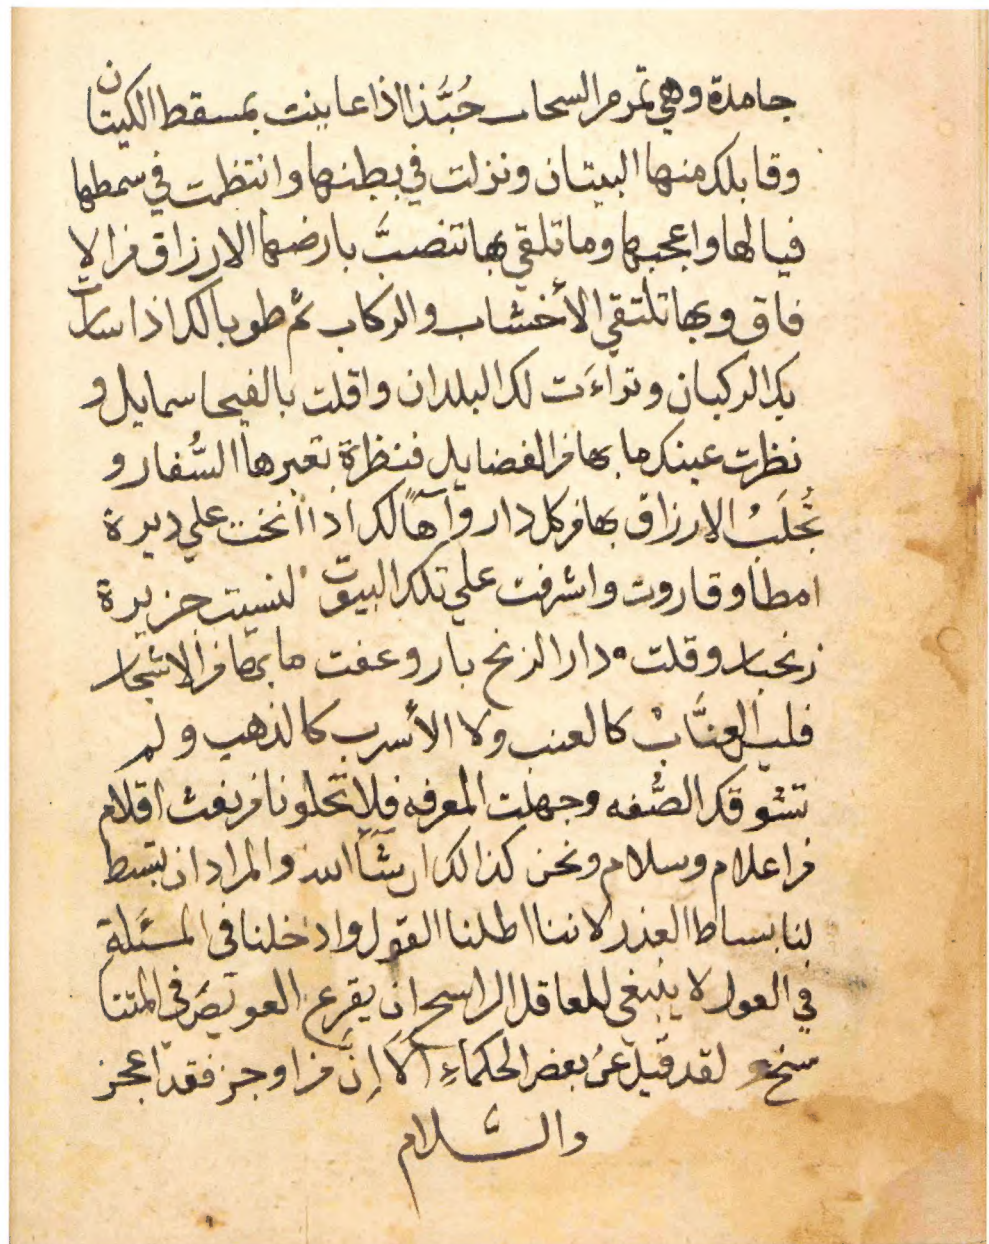 جامدة وهي تمر مر السحاب حُبَّذا اذا عاينت بمسقط الكيتان
وقابلك منها البيتان ونزلت في بطنها وانتظمت في سمطها
فيالها واعجبها وما تلقي بها تنصبّ بارضها الارزاق من الا
فاق وبها تلتقي الأخشاب والركاب ثم طوبا لك اذا سارت
بك الركبان وتراءَت لك البلدان واقلت بالفيحا سمايل و
نظرت عينك ما بها من الفضايل فنظرة تعبرها السُّفار و
تُجلَبُ الارزاق بها من كل دار وآهاً لك اذا أنخت علي ديرة
امطا وقاروت واشرفت علي تلك البيوت لنسيت جزيرة
زنجبار وقلت دار الزنج بار وعفت ما بها من الاشجار
فليس العنَّاب كالعنب ولا الأسرب كالذهب و لم
تشوقك الصُّفه وجهلت المعرفه فلا تخلونا من نفث اقلام
من اعلام وسلام ونحن كذالك ان شآء الله والمراد ان تبسط
لنا بساط العذر لاننا اطلنا القول وادخلنا في المسَئلة
في العول لا ينبغي للعاقل الراسخ ان يقرع العويصَ في المتنا
سخ و لقد قيل عن بعض الحكماءِ ألا إنَّ من اوجز فقد اعجز
والسَّلام